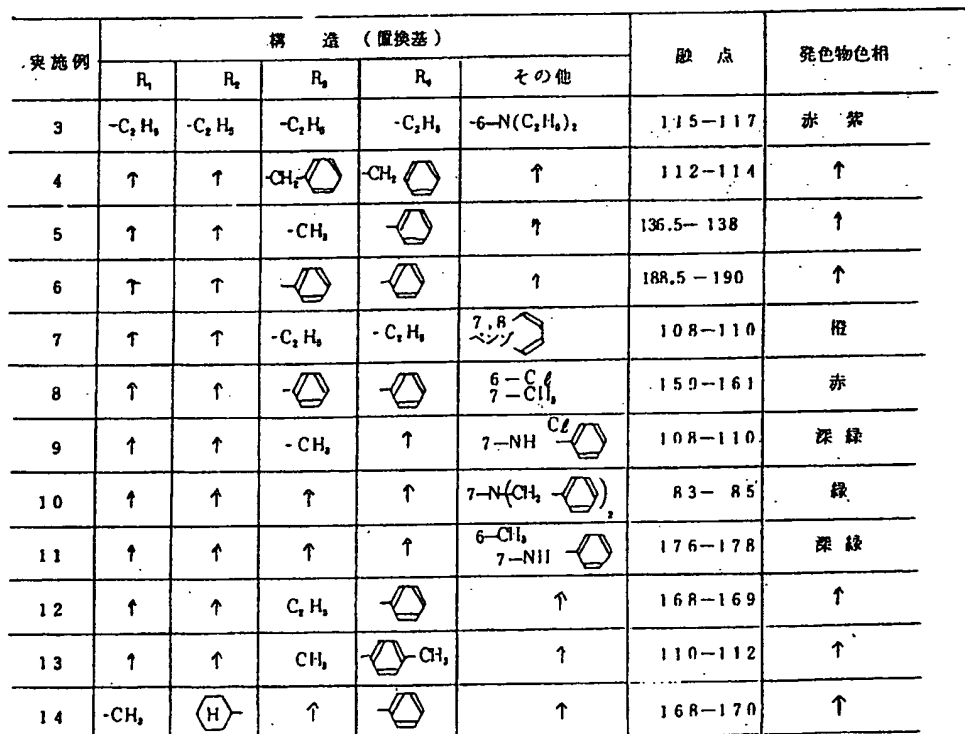 実施例 構造(置換基) 融点 発色物色相
R₁ R₂ R₃ R₄ その他
3 -C₂H₅ -C₂H₅ -C₂H₅ -C₂H₅ -6-N(C₂H₅)₂ 115-117 赤紫
4 ↑ ↑ -CH₂- -CH₂ ↑ 112-114 ↑
5 ↑ ↑ -CH₃ ↑ 136.5-138 ↑
6 ↑ ↑ ↑ 188.5-190 ↑
7 ↑ ↑ -C₂H₅ -C₂H₅ 7,8 ベンゾ 108-110 橙
8 ↑ ↑ 6-Cl 7-CH₃ 159-161 赤
9 ↑ ↑ -CH₃ ↑ 7-NH Cl 108-110 深緑
10 ↑ ↑ ↑ ↑ 7-N(CH₂- )₂ 83-85 緑
11 ↑ ↑ ↑ ↑ 6-CH₃ 7-NH 176-178 深緑
12 ↑ ↑ C₂H₅ ↑ 168-169 ↑
13 ↑ ↑ CH₃ -CH₃ ↑ 110-112 ↑
14 -CH₃ H ↑ ↑ 168-170 ↑